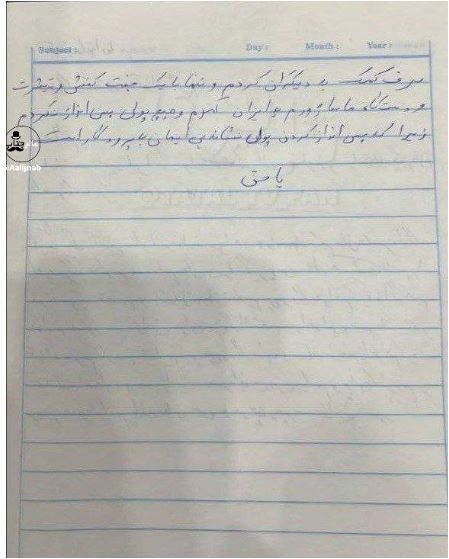 Subject: Day: Month: Year:
صرف کمک به دیگران کردم و تنها با یک جفت کفش و تیشرت
و دستگاه ماساژورم به ایران آمدم و هیچ پولی پس انداز نکردم
زیرا که پس انداز کردن پول نشانه بی ایمان به پروردگار است
یا حق
Aalijnab